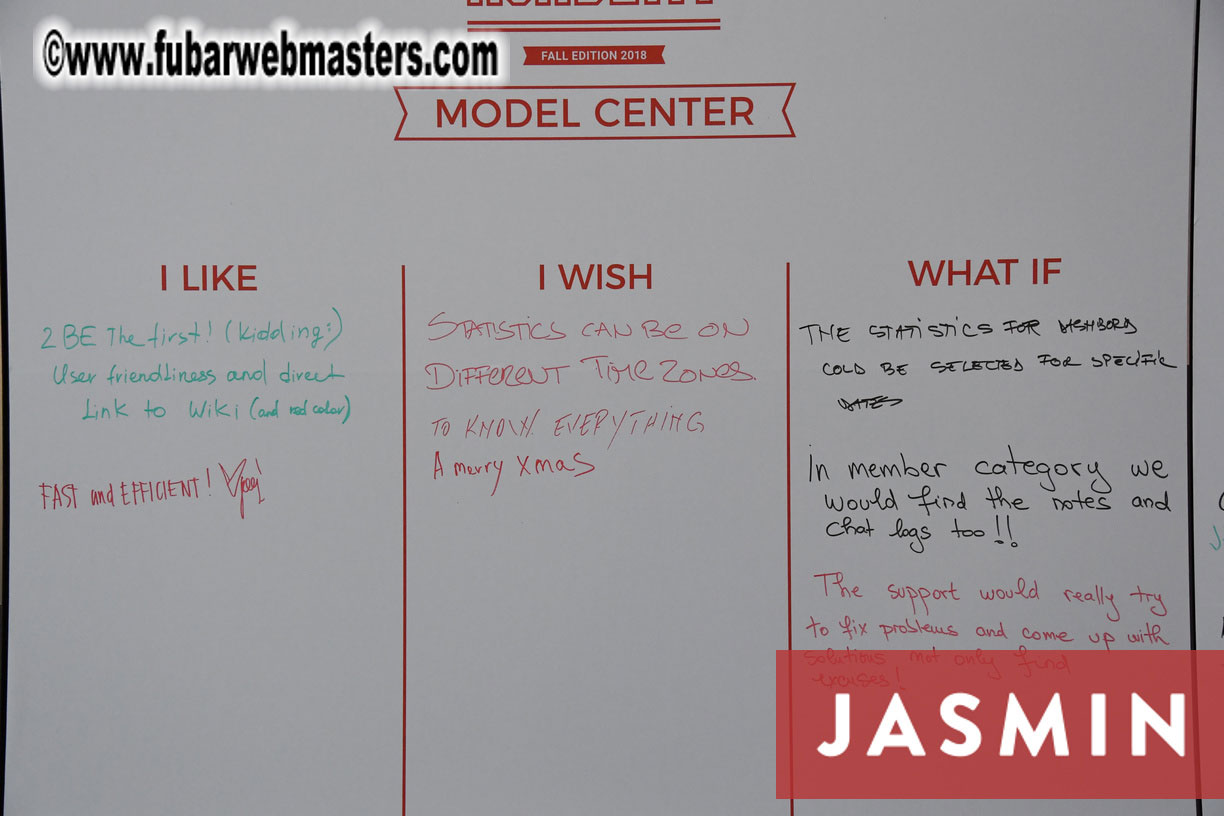 ©www.fubarwebmasters.com
FALL EDITION 2018
MODEL CENTER
I LIKE
2 BE The first! (kidding:)
User friendliness and direct
Link to Wiki (and red color)
FAST and EFFICIENT!
I WISH
STATISTICS CAN BE ON
DIFFERENT TIME ZONES.
TO KNOW EVERYTHING
A merry xmas
WHAT IF
THE STATISTICS FOR
COLD BE SELECTED FOR SPECIFIC
DATES
In member category we
would find the notes and
chat logs too!!
The support would really try
to fix problems and come up with
solutions not only find
excuses!
JASMIN